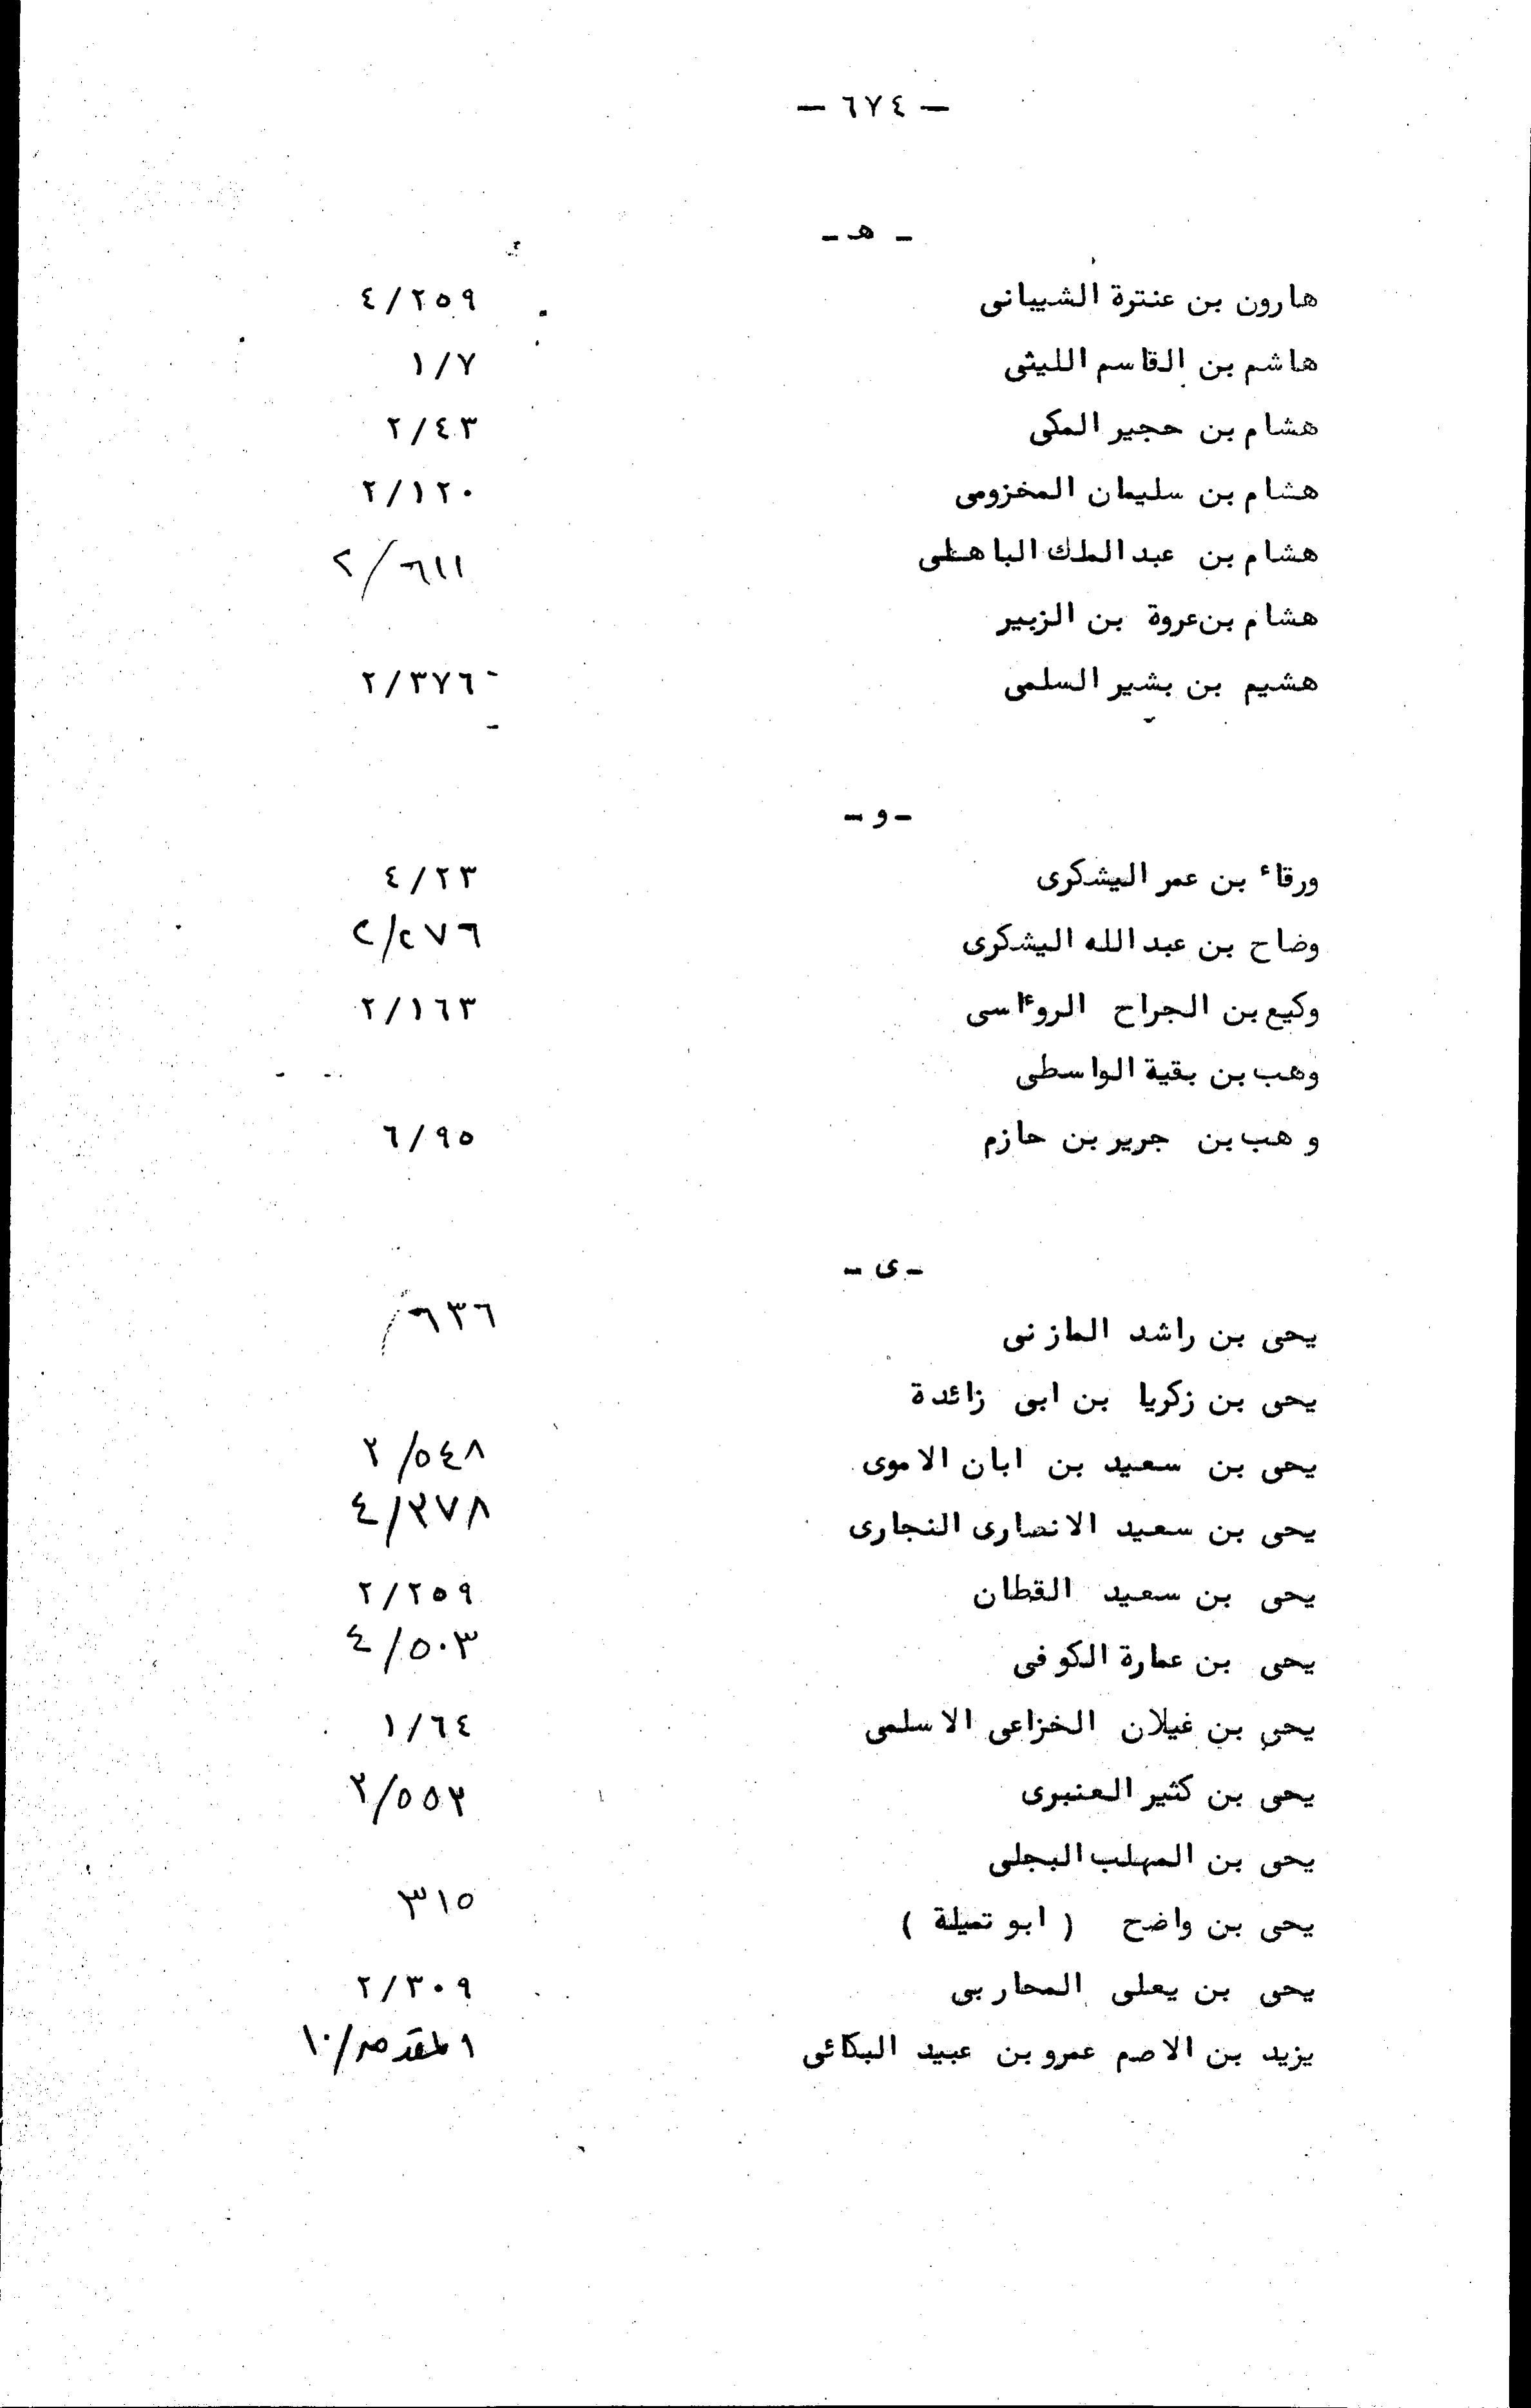 — ٦٧٤ —
- هـ -
هارون بن عنترة الشيبانى ٤/٢٥٩
هاشم بن القاسم الليثى ١/٧
هشام بن حجير المكى ٢/٤٣
هشام بن سليمان المخزومى ٢/١٢٠
هشام بن عبدالملك الباهلى ٢/٦١١
هشام بن عروة بن الزبير
هشيم بن بشير السلمى ٢/٣٧٦
- و -
ورقاء بن عمر اليشكرى ٤/٢٣
وضاح بن عبدالله اليشكرى ٢/٢٧٦
وكيع بن الجراح الروءاسى ٢/١٦٣
وهب بن بقية الواسطى
وهب بن جرير بن حازم ٦/٩٥
- ى -
يحى بن راشد المازنى /٦٣٦
يحى بن زكريا بن ابى زائدة
يحى بن سعيد بن ابان الاموى ٢/٥٤٨
يحى بن سعيد الانصارى النجارى ٤/٢٧٨
يحى بن سعيد القطان ٢/٢٥٩
يحى بن عمارة الكوفى ٤/٥٠٣
يحى بن غيلان الخزاعى الاسلمى ١/٦٤
يحى بن كثير العنبرى ٢/٥٥٢
يحى بن المهلب البجلى
يحى بن واضح ( ابو تميلة ) ٣١٥
يحى بن يعلى المحاربى ٢/٣٠٩
يزيد بن الاصم عمرو بن عبيد البكائى المقدمه/١٠